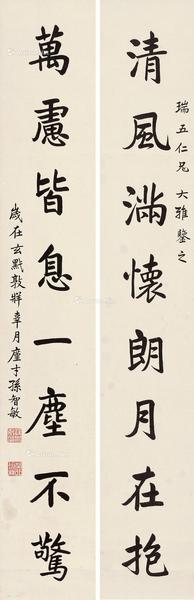 瑞五仁兄大雅鑒之
清風滿懷朗月在抱
萬慮皆息一塵不驚
歲在玄黓敦牂辜月廑才孫智敏